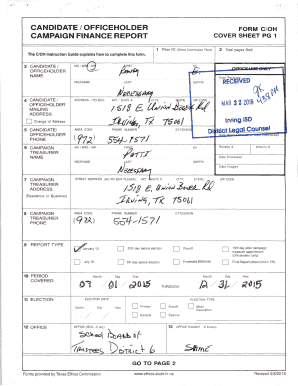 CANDIDATE / OFFICEHOLDER
CAMPAIGN FINANCE REPORT
FORM C/OH
COVER SHEET PG 1
The C/OH Instruction Guide explains how to complete this form.
1 Filer ID (Ethics Commission Filers)
2 Total pages filed:
3 CANDIDATE / OFFICEHOLDER NAME
MS / MRS / MR
FIRST
MI
NICKNAME
LAST
SUFFIX
OFFICE USE ONLY
RECEIVED
MAR 22 2016
Irving ISD
District Legal Counsel
4 CANDIDATE / OFFICEHOLDER MAILING ADDRESS
Change of Address
ADDRESS / PO BOX;
1518 E. Union Bower Rd
Irving, TX 75061
5 CANDIDATE / OFFICEHOLDER PHONE
AREA CODE
PHONE NUMBER
EXTENSION
(972) 554-1571
6 CAMPAIGN TREASURER NAME
MS / MRS / MR
FIRST
MI
Patti
NICKNAME
LAST
SUFFIX
Receipt #
Amount $
Date Processed
Date Imaged
7 CAMPAIGN TREASURER ADDRESS
(Residence or Business)
STREET ADDRESS (NO PO BOX PLEASE);
ZIP CODE
1518 E. Union Bower Rd
Irving, TX 75061
8 CAMPAIGN TREASURER PHONE
AREA CODE
PHONE NUMBER
EXTENSION
(972) 554-1571
9 REPORT TYPE
January 15
30th day before election
Runoff
15th day after campaign treasurer appointment (Officeholder Only)
July 15
8th day before election
Exceeded $500 limit
Final Report (Attach C/OH - FR)
10 PERIOD COVERED
Month Day Year
07 / 01 / 2015
THROUGH
Month Day Year
12 / 31 / 2015
11 ELECTION
ELECTION DATE
Month Day Year
ELECTION TYPE
Primary
Runoff
Other Description
General
Special
12 OFFICE
OFFICE HELD (if any)
School Board of
Trustees District 6
13 OFFICE SOUGHT (if known)
SAME
GO TO PAGE 2
Forms provided by Texas Ethics Commission
www.ethics.state.tx.us
Revised 9/8/2015